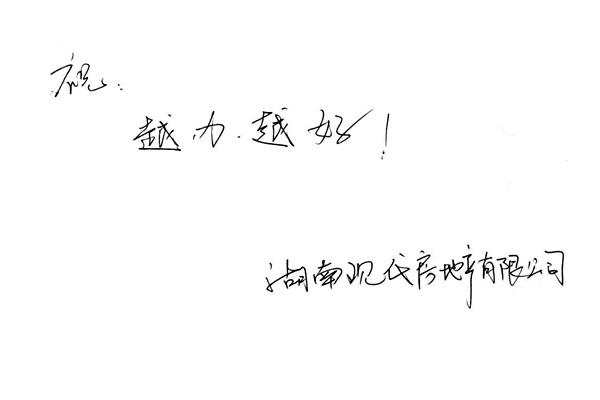 祝：
越办越好！
湖南现代房地产有限公司